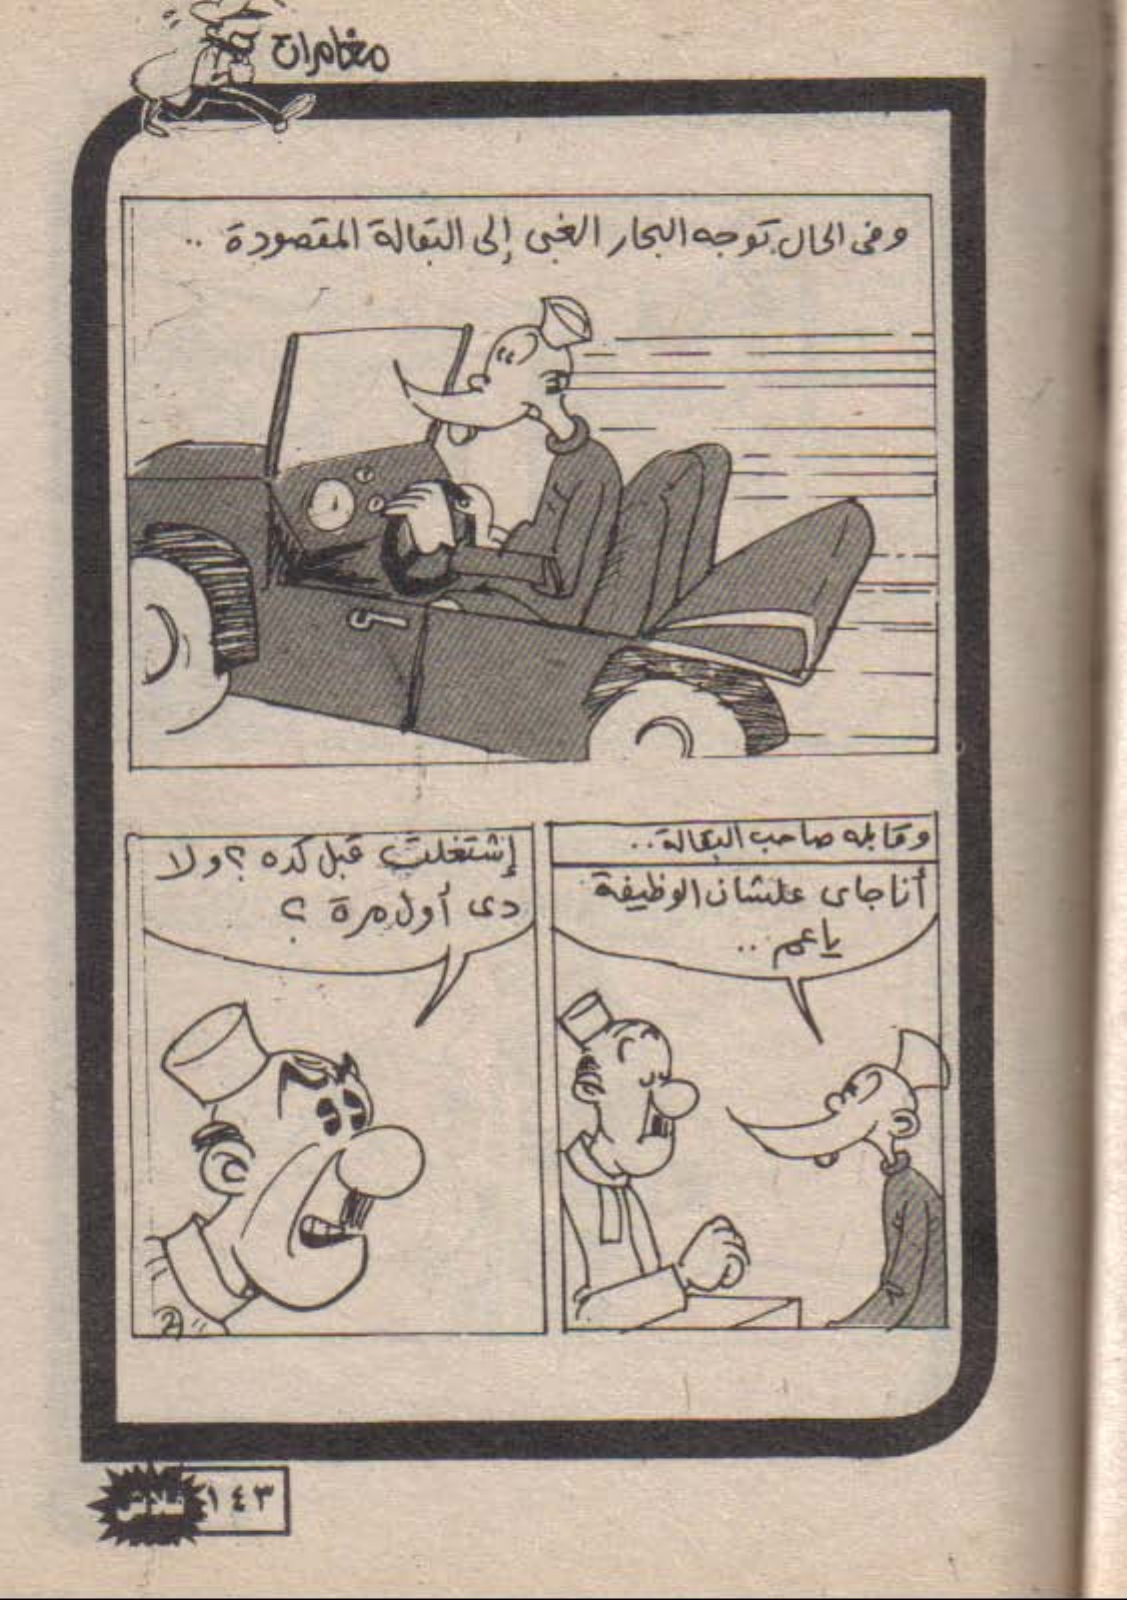 مغامرات
وفى الحال توجه البحار الغبى إلى البقالة المقصودة ..
وقابله صاحب البقالة..
أنا جاى علشان الوظيفة
ياعم ..
إشتغلت قبل كده ؟ ولا
دى أول مرة ؟
١٤٣
فلاش